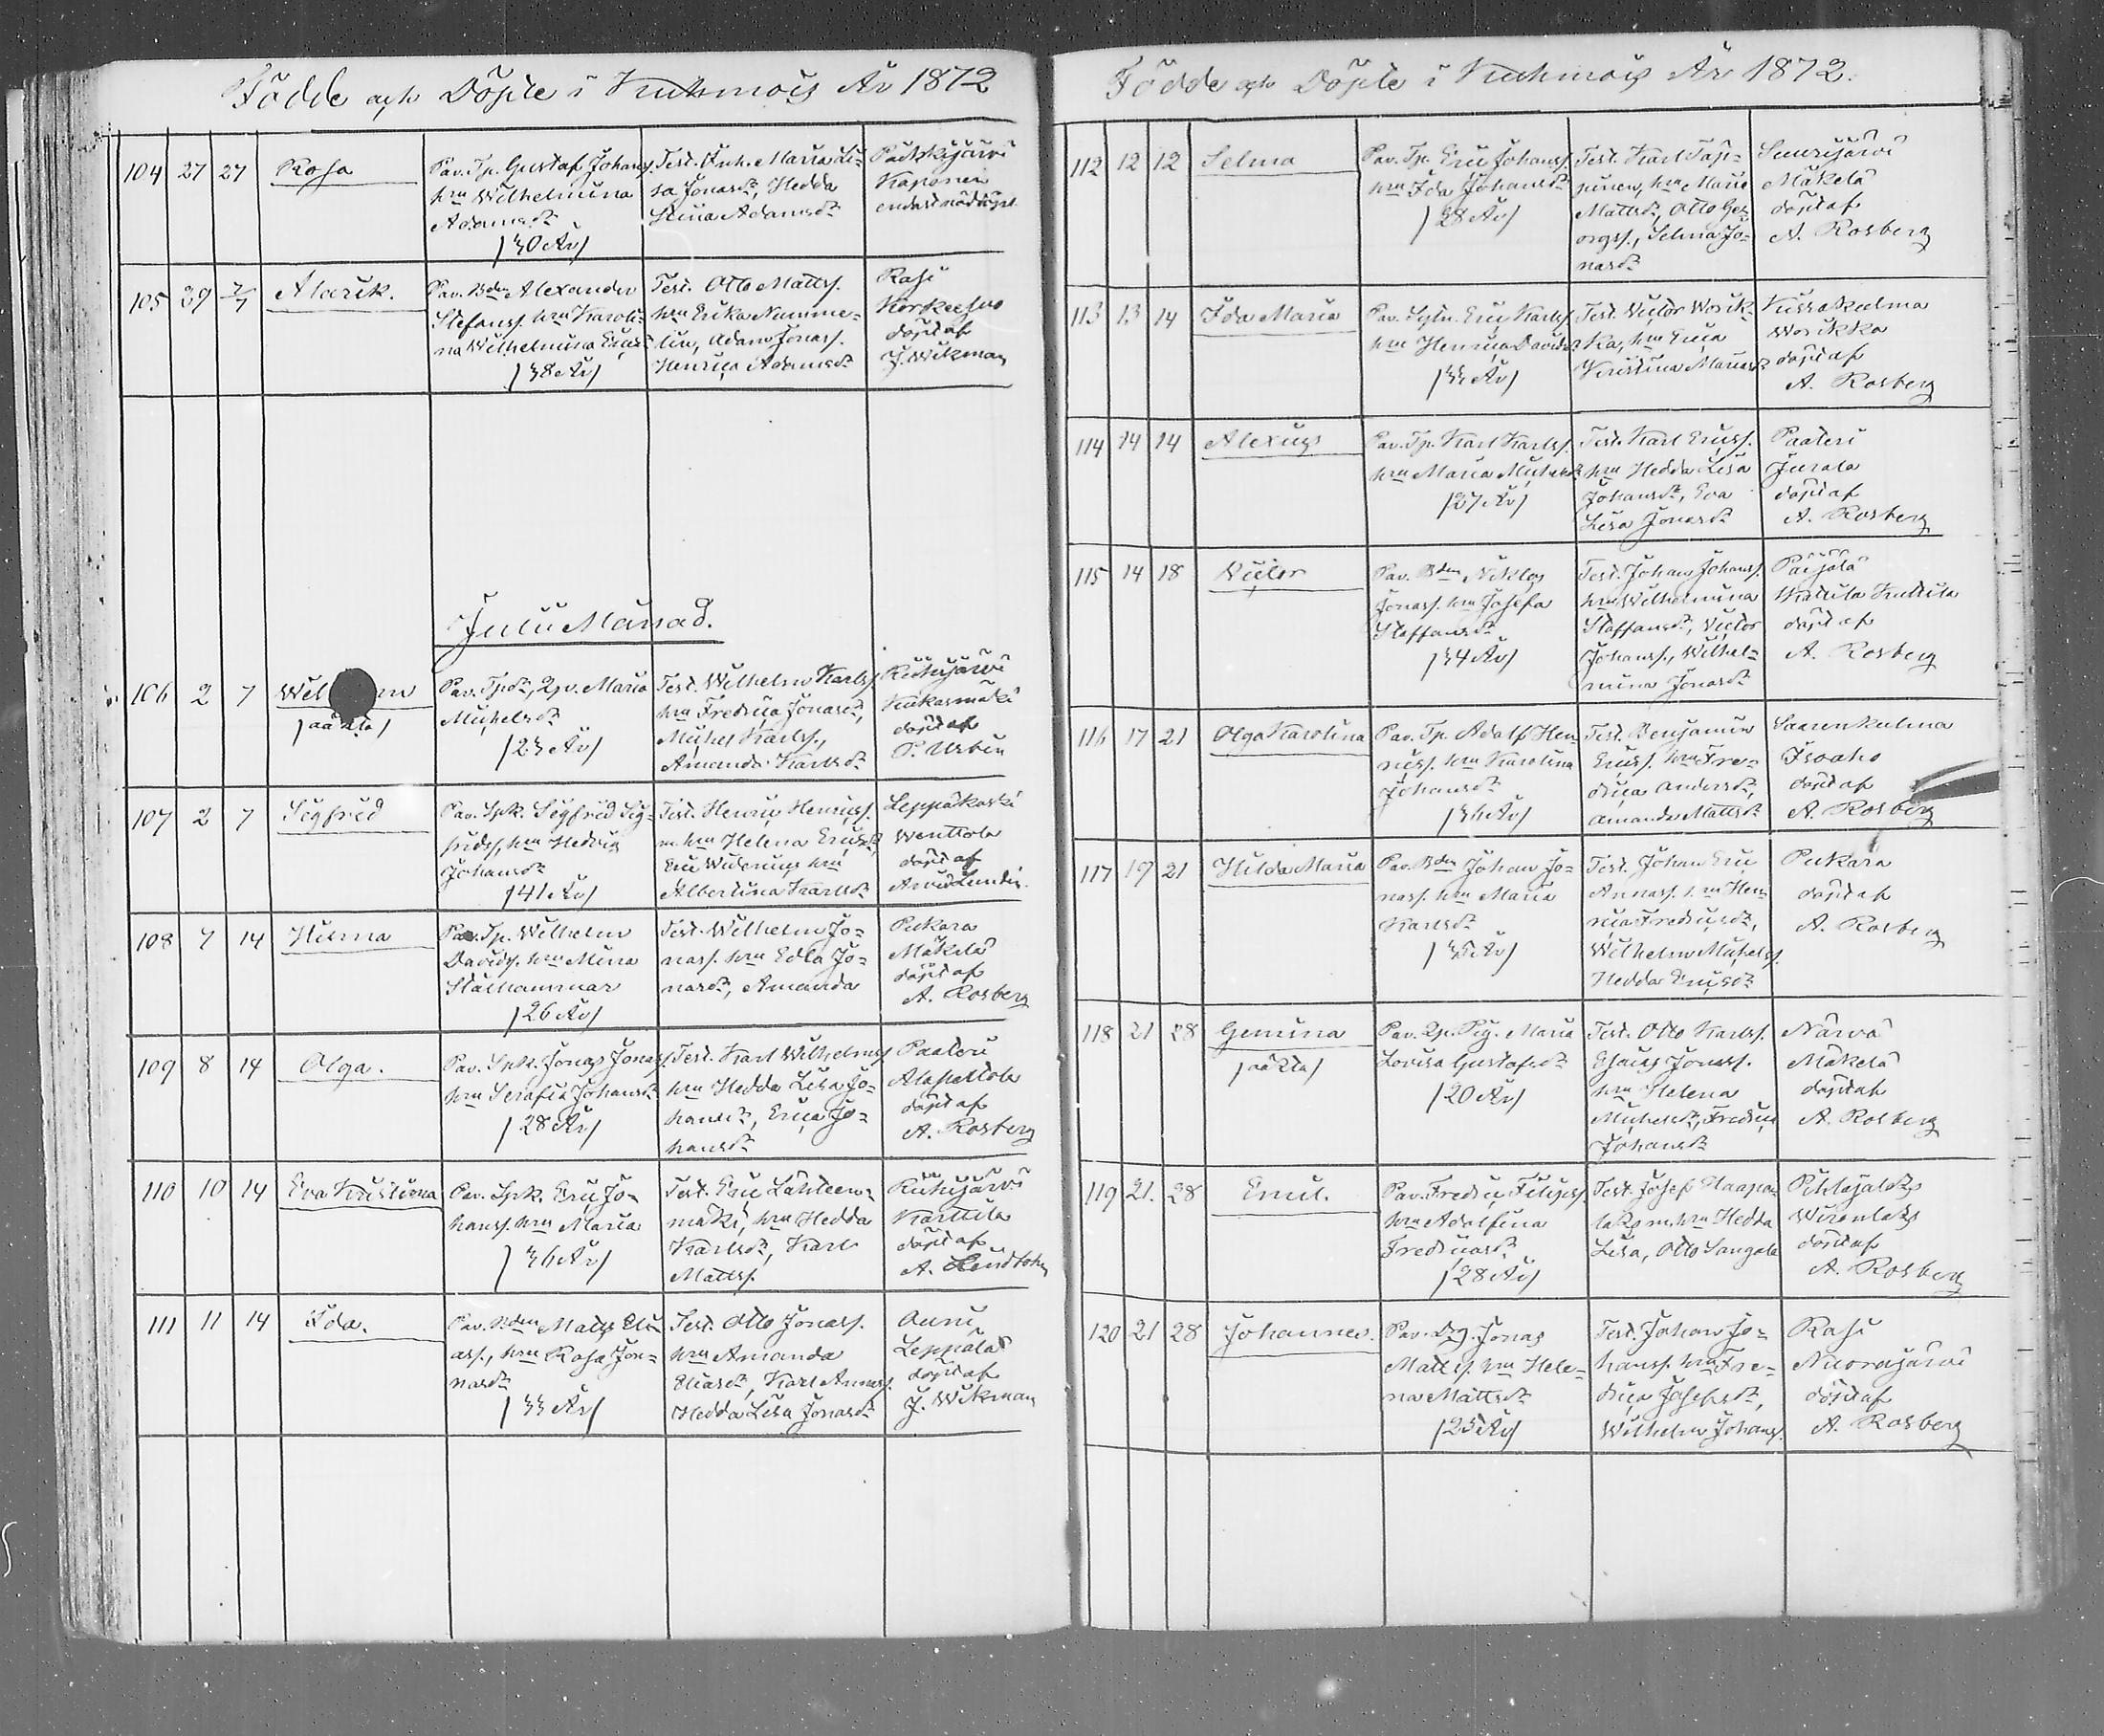 Födde och Döpte i Kuhmois År 1872
104 27 27 Rosa
Pav. Tp. Gustaf Johanss.
hm Wilhelmina
Adamsdr
/30 År/
Test. Inh. Maria Li-
sa Jonasdr, Hedda
Stina Adamsdr
Päd
Kaponen
endast nöddöpt
105 29 7/7 Alarik.
Pav. Bdn Alexander
Stefanss. hm Karoli-
na Wilhelmina Ericsdr
/38 År/
Test. Otto Matts.
hm Erika Numme-
lin, Adam Jonass.
Henrica Adamsdr
Rasi
Korkeesuo
döpt af
J. Wikman
Julii Månad.
106 2 7 Wil m
/oäkta/
Pav. Tpdr, Qpv. Maria
Michelsdr
/23 År/
Test. Wilhelm Karlss.
hm Fredrica Jonasdr,
Michel Karlss.,
Amanda Karlsdr
Riihijärvi
Kukasmäki
döpt af
P. Urbin
107 2 7 Sigfrid
Pav. Spk. Sigfrid Sig-
fridss. hm Hedvig
Johansdr
/41 År/
Test. Henric Henricss.
m. hm Helena Ericsdr,
Eric Widenius hm
Albertina Karlsdr
Leppäkoski
Wenttola
döpt af
Arvid Lundin.
108 7 14 Hilma
Pav. Tp. Wilhelm
Davidss. hm Mina
Stålhammar
/26 År/
Test. Wilhelm Jo-
nass. hm Edla Jo-
nasdr, Amanda
Pukara
Mäkelä
döpt af
A. Rosberg
109 8 14 Olga.
Pav. Spk. Jonas Jonass.
hm Serafia Johansdr
/28 År/
Test. Karl Wilhelmss.
hm Hedda Lisa Jo-
hansdr, Erica Jo-
hansdr
Paateri
Alapettola
döpt af
A. Rosberg
110 10 14 Eva Kristina
Pav. Spk. Eric Jo-
hanss. hm Maria
/36 År/
Test. Eric Lähteen-
mäki, hm Hedda
Karlsdr, Karl
Matts.
Riihijärvi
Karttila
döpt af
A. Lindbohm
111 11 14 Ida.
Pav. Bdn Matts Eli-
ass., hm Rosa Jon-
nasdr
/33 År/
Test. Otto Jonass.
hm Amanda
Eliasdr, Karl Annass.
Hedda Lisa Jonasdr
Auni
Leppälä
döpt af
J. Wikman
Födde och Döpte i Kuhmois År 1872.
112 12 12 Selma
Pav. Tp. Eric Johanss.
hm Ida Johansdr
/28 År/
Test. Karl Tapi-
ainen, hm Maria
Mattsdr, Otto Ge-
orgss., Selma Jo-
nasdr
Suurijärvi
Mäkelä
döpt af
A. Rosberg
113 13 14 Ida Maria
Pav. Sytn. Eric Karlss.
hm Henrica Davidsdr
/33 År/
Test. Victor Worik-
ka, hm Erica
Kristina Mariasdr
Kissakulma
Worikka
döpt af
A. Rosberg
114 14 14 Alexius
Pav. Tp. Karl Karlss.
hm Maria Michelsdr
/27 År/
Test. Karl Ericss.
hm Hedda Lisa
Johansdr, Eva
Lisa Jonasdr
Paateri
Jurala
döpt af
A. Rosberg
115 14 18 Victor
Pav. Bdn Niklas
Jonass. hm Josefa
Staffansdr
/34 År/
Test. Johan Johanss.
hm Wilhelmina
Staffansdr, Victor
Johanss., Wilhel-
mina Jonasdr
Päijälä
döpt af
A. Rosberg
116 17 21 Olga Karolina
Pav. Tp. Adolf Hen-
ricss. hm Karolina
Johansdr
/36 År/
Test. Benjamin
Ericss. hm Fre-
drica Andersdr,
Amanda Mattsdr
Saarenkulma
Isoaho
döpt af
A. Rosberg
117 19 21 Hilda Maria
Pav. Bdn Johan Jo-
nass. hm Maria
Karlsdr
/35 År/
Test. Johan Eric
Annass. hm Hen-
rica Fredricsdr,
Wilhelm Michelss.
Hedda Ericsdr
Pukara
döpt af
A. Rosberg
118 21 28 Gemina
/oäkta/
Pav. Qp. Pig. Maria
Lovisa Gustafsdr
/20 År/
Test. Otto Karlss.
Esaias Jonass.
hm Helena
Michelsdr, Fredrica
Johansdr
Närvä
Mäkelä
döpt af
A. Rosberg
119 21. 28 Emil.
Pav. Fredric Filipss.
hm Adolfina
Fredricasdr
/28 År/
Test. Josef Haapa-
laks m. hm Hedda
Lisa, Otto Sangala
Pihlajalaks
Wirenlaks
döpt af
A. Rosberg
120 21 28 Johannes.
Pav. Drg. Jonas
Matts. hm Hele-
na Mattsdr
/25 År/
Test. Johan Jo-
hanss. hm Fre-
drica Josefsdr,
Wilhelm Johanss.
Rasi
Nuorajärvi
döpt af
A. Rosberg